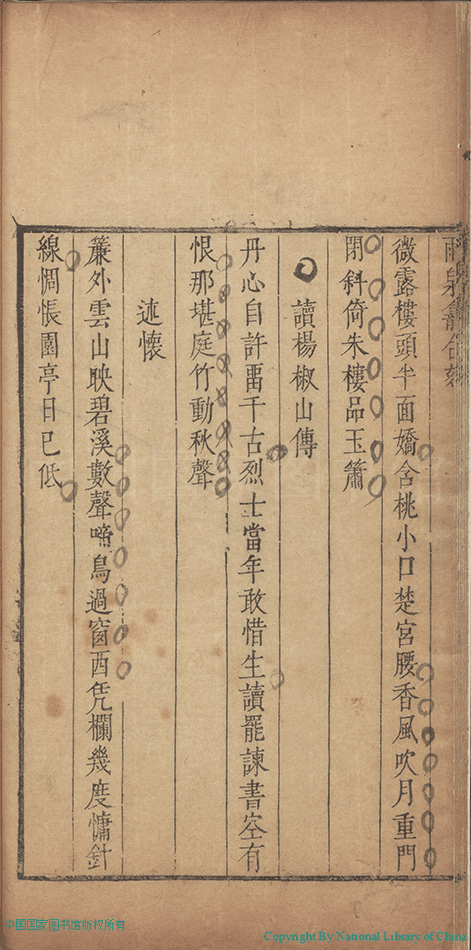 微露樓頭半面嬌含桃小口楚宮腰香風吹月重門
閉斜倚朱樓品玉簫
讀楊椒山傳
丹心自許畱千古烈士當年敢惜生讀罷諫書空有
恨那堪庭竹動秋聲
述懷
簾外雲山映碧溪數聲啼鳥過窗西凭欄幾度慵針
線惆悵園亭日已低
中国国家图书馆版权所有
Copyright By National Library of China